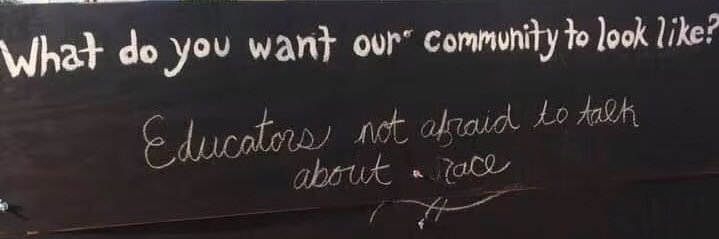 What do you want our community to look like?
Educators not afraid to talk
about race